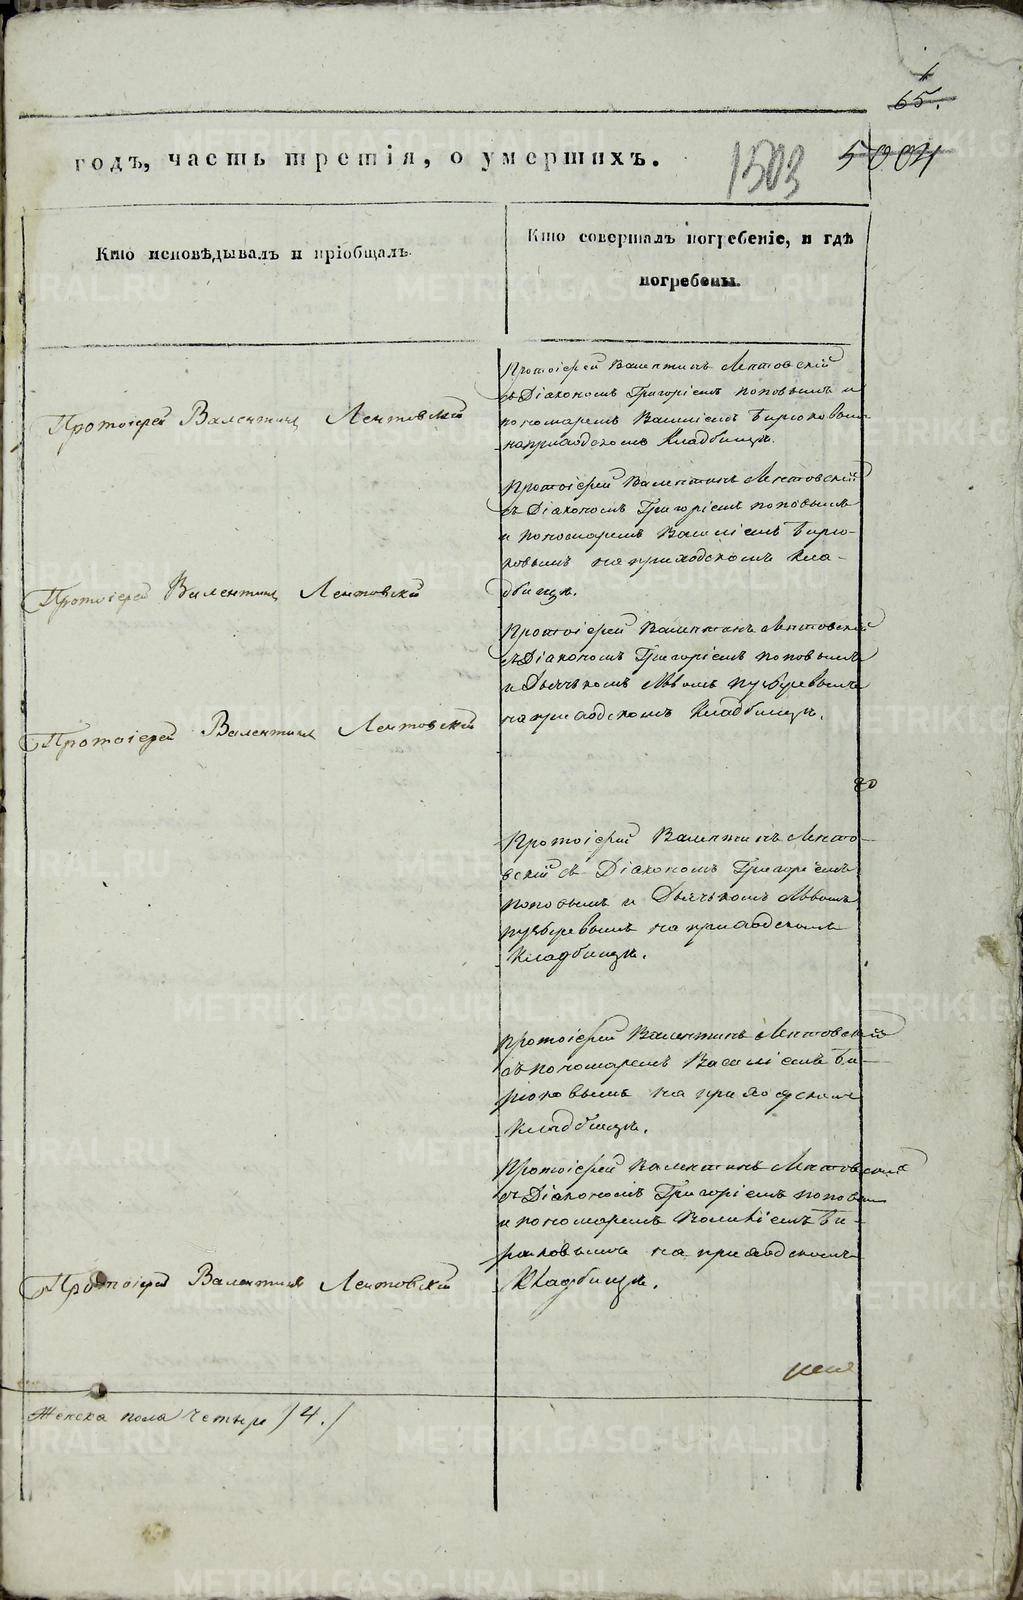 65.
годъ, часть третія, о умершихъ.
1503
5004
Кто исповѣдывалъ и пріобщалъ.
Кто совершалъ погребеніе, и гдѣ
погребены.
Протоіерей Валентинъ Лентовскій
Протоіерей Валентинъ Лентовскій
съ Діакономъ Григоріемъ Поповымъ и
пономаремъ Василіемъ Бирюковымъ
на приходскомъ Кладбищѣ.
Протоіерей Валентинъ Лентовскій
Протоіерей Валентинъ Лентовскій
съ Діакономъ Григоріемъ Поповымъ
и пономаремъ Василіемъ Бирю-
ковымъ на приходскомъ Кла-
дбищѣ.
Протоіерей Валентинъ Лентовскій
Протоіерей Валентинъ Лентовскій
съ Діакономъ Григоріемъ Поповымъ
и Дьячькомъ Львомъ
на приходскомъ Кладбищѣ.
Протоіерей Валентинъ Ленто-
вскій съ Діакономъ Григоріемъ
Поповымъ и Дьячькомъ Львомъ
на приходскомъ
Кладбищѣ.
Протоіерей Валентинъ Лентовскій
съ пономаремъ Василіемъ Би-
рюковымъ на приходскомъ
Кладбищѣ.
Протоіерей Валентинъ Лентовскій
Протоіерей Валентинъ Лентовскій
съ Діакономъ Григоріемъ Поповым
и пономаремъ Василіемъ Би-
рюковымъ на приходскомъ
Кладбищѣ.
Женска пола четыре /4./
METRIKI.GASO-URAL.RU